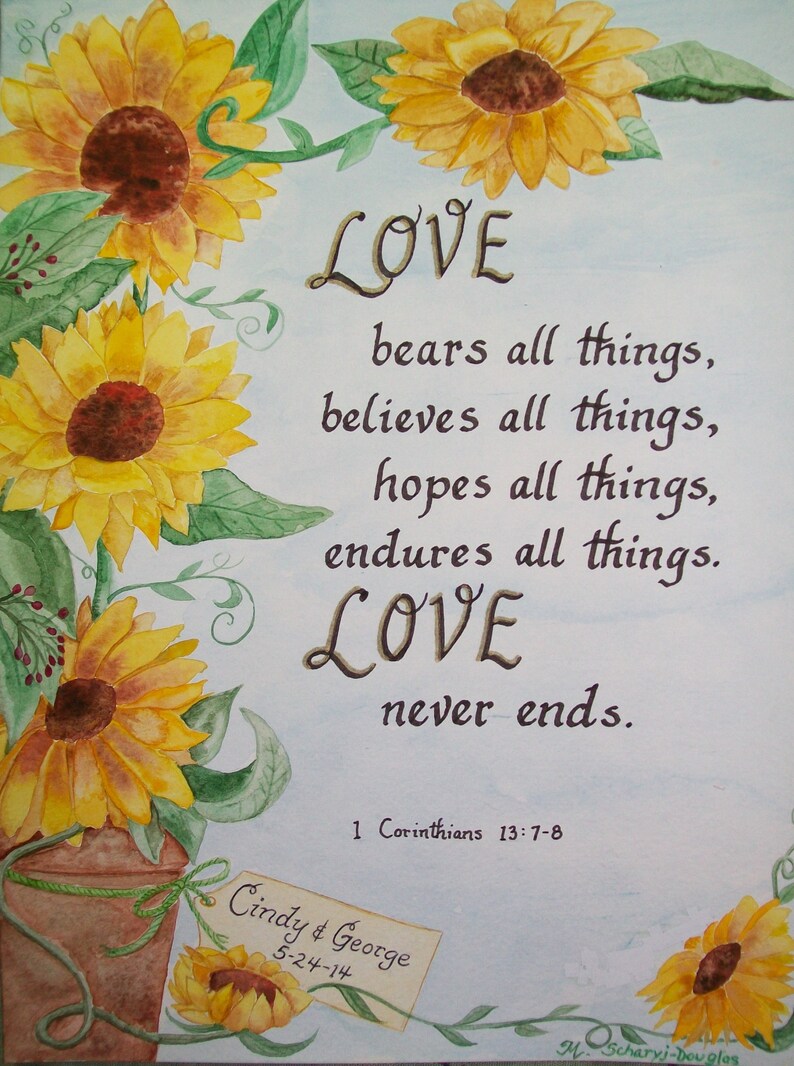 LOVE
bears all things,
believes all things,
hopes all things,
endures all things.
LOVE
never ends.
1 Corinthians 13:7-8
Cindy & George
5-24-14
M. Scharyj-Douglas